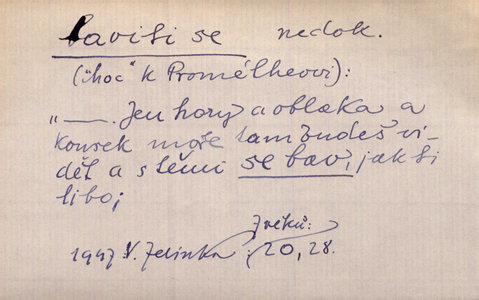 baviti se nedok.
("Moc" k Prométheovi):
"——. Jen hory a oblaka a
kousek moře tam budeš vi-
dět a s těmi se bav, jak ti
libo;
Zvěků:
1947 V. Jelínka: 20, 28.